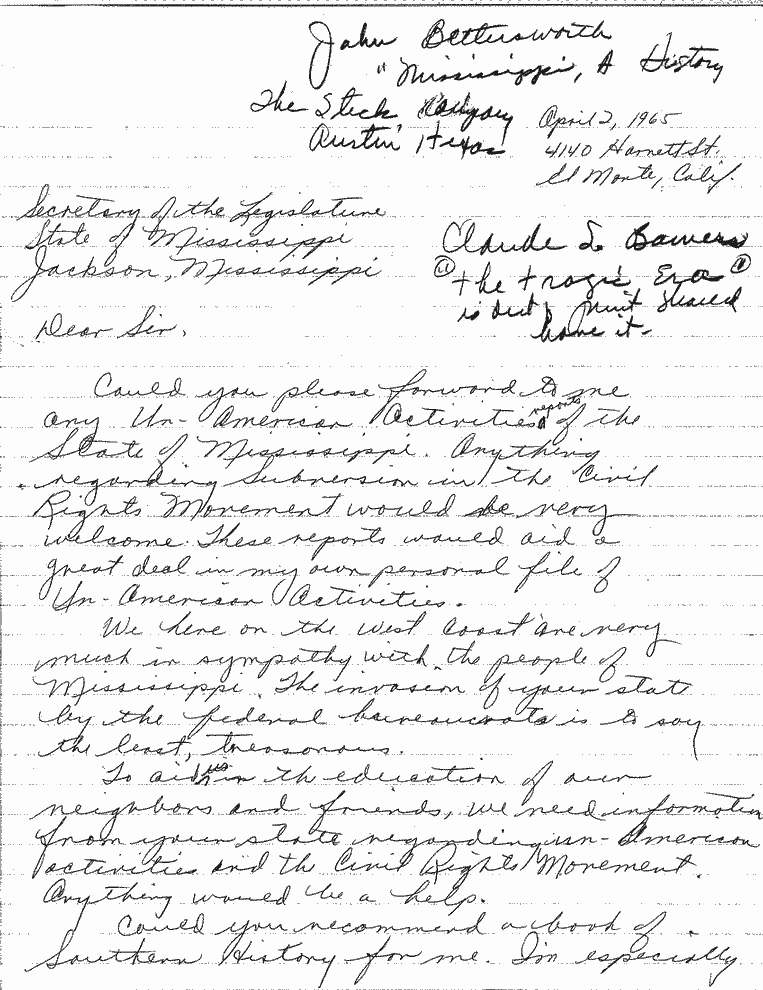 John Bettersworth
"Mississippi, A History
The Steck Company
Austin Texas
April 2, 1965
4140 Harnett St.
El Monte, Calif.
Secretary of the Legislature
State of Mississippi
Jackson, Mississippi
Claude G. Bowers
"The Tragic Era"
is out print should
have it-
Dear Sir,
Could you please forward to me
any Un-American Activities reports of the
State of Mississippi. Anything
regarding Subversion in the Civil
Rights Movement would be very
welcome. These reports would aid a
great deal in my own personal file of
Un-American Activities.
We here on the west coast are very
much in sympathy with the people of
Mississippi. The invasion of your state
by the federal bureaucrats is to say
the least, treasonous.
To aid us in th education of our
neighbors and friends, we need information
from your state regarding un-American
activities and th Civil Rights Movement.
Anything would be a help.
Could you recommend a book of
Southern History for me. I'm especially